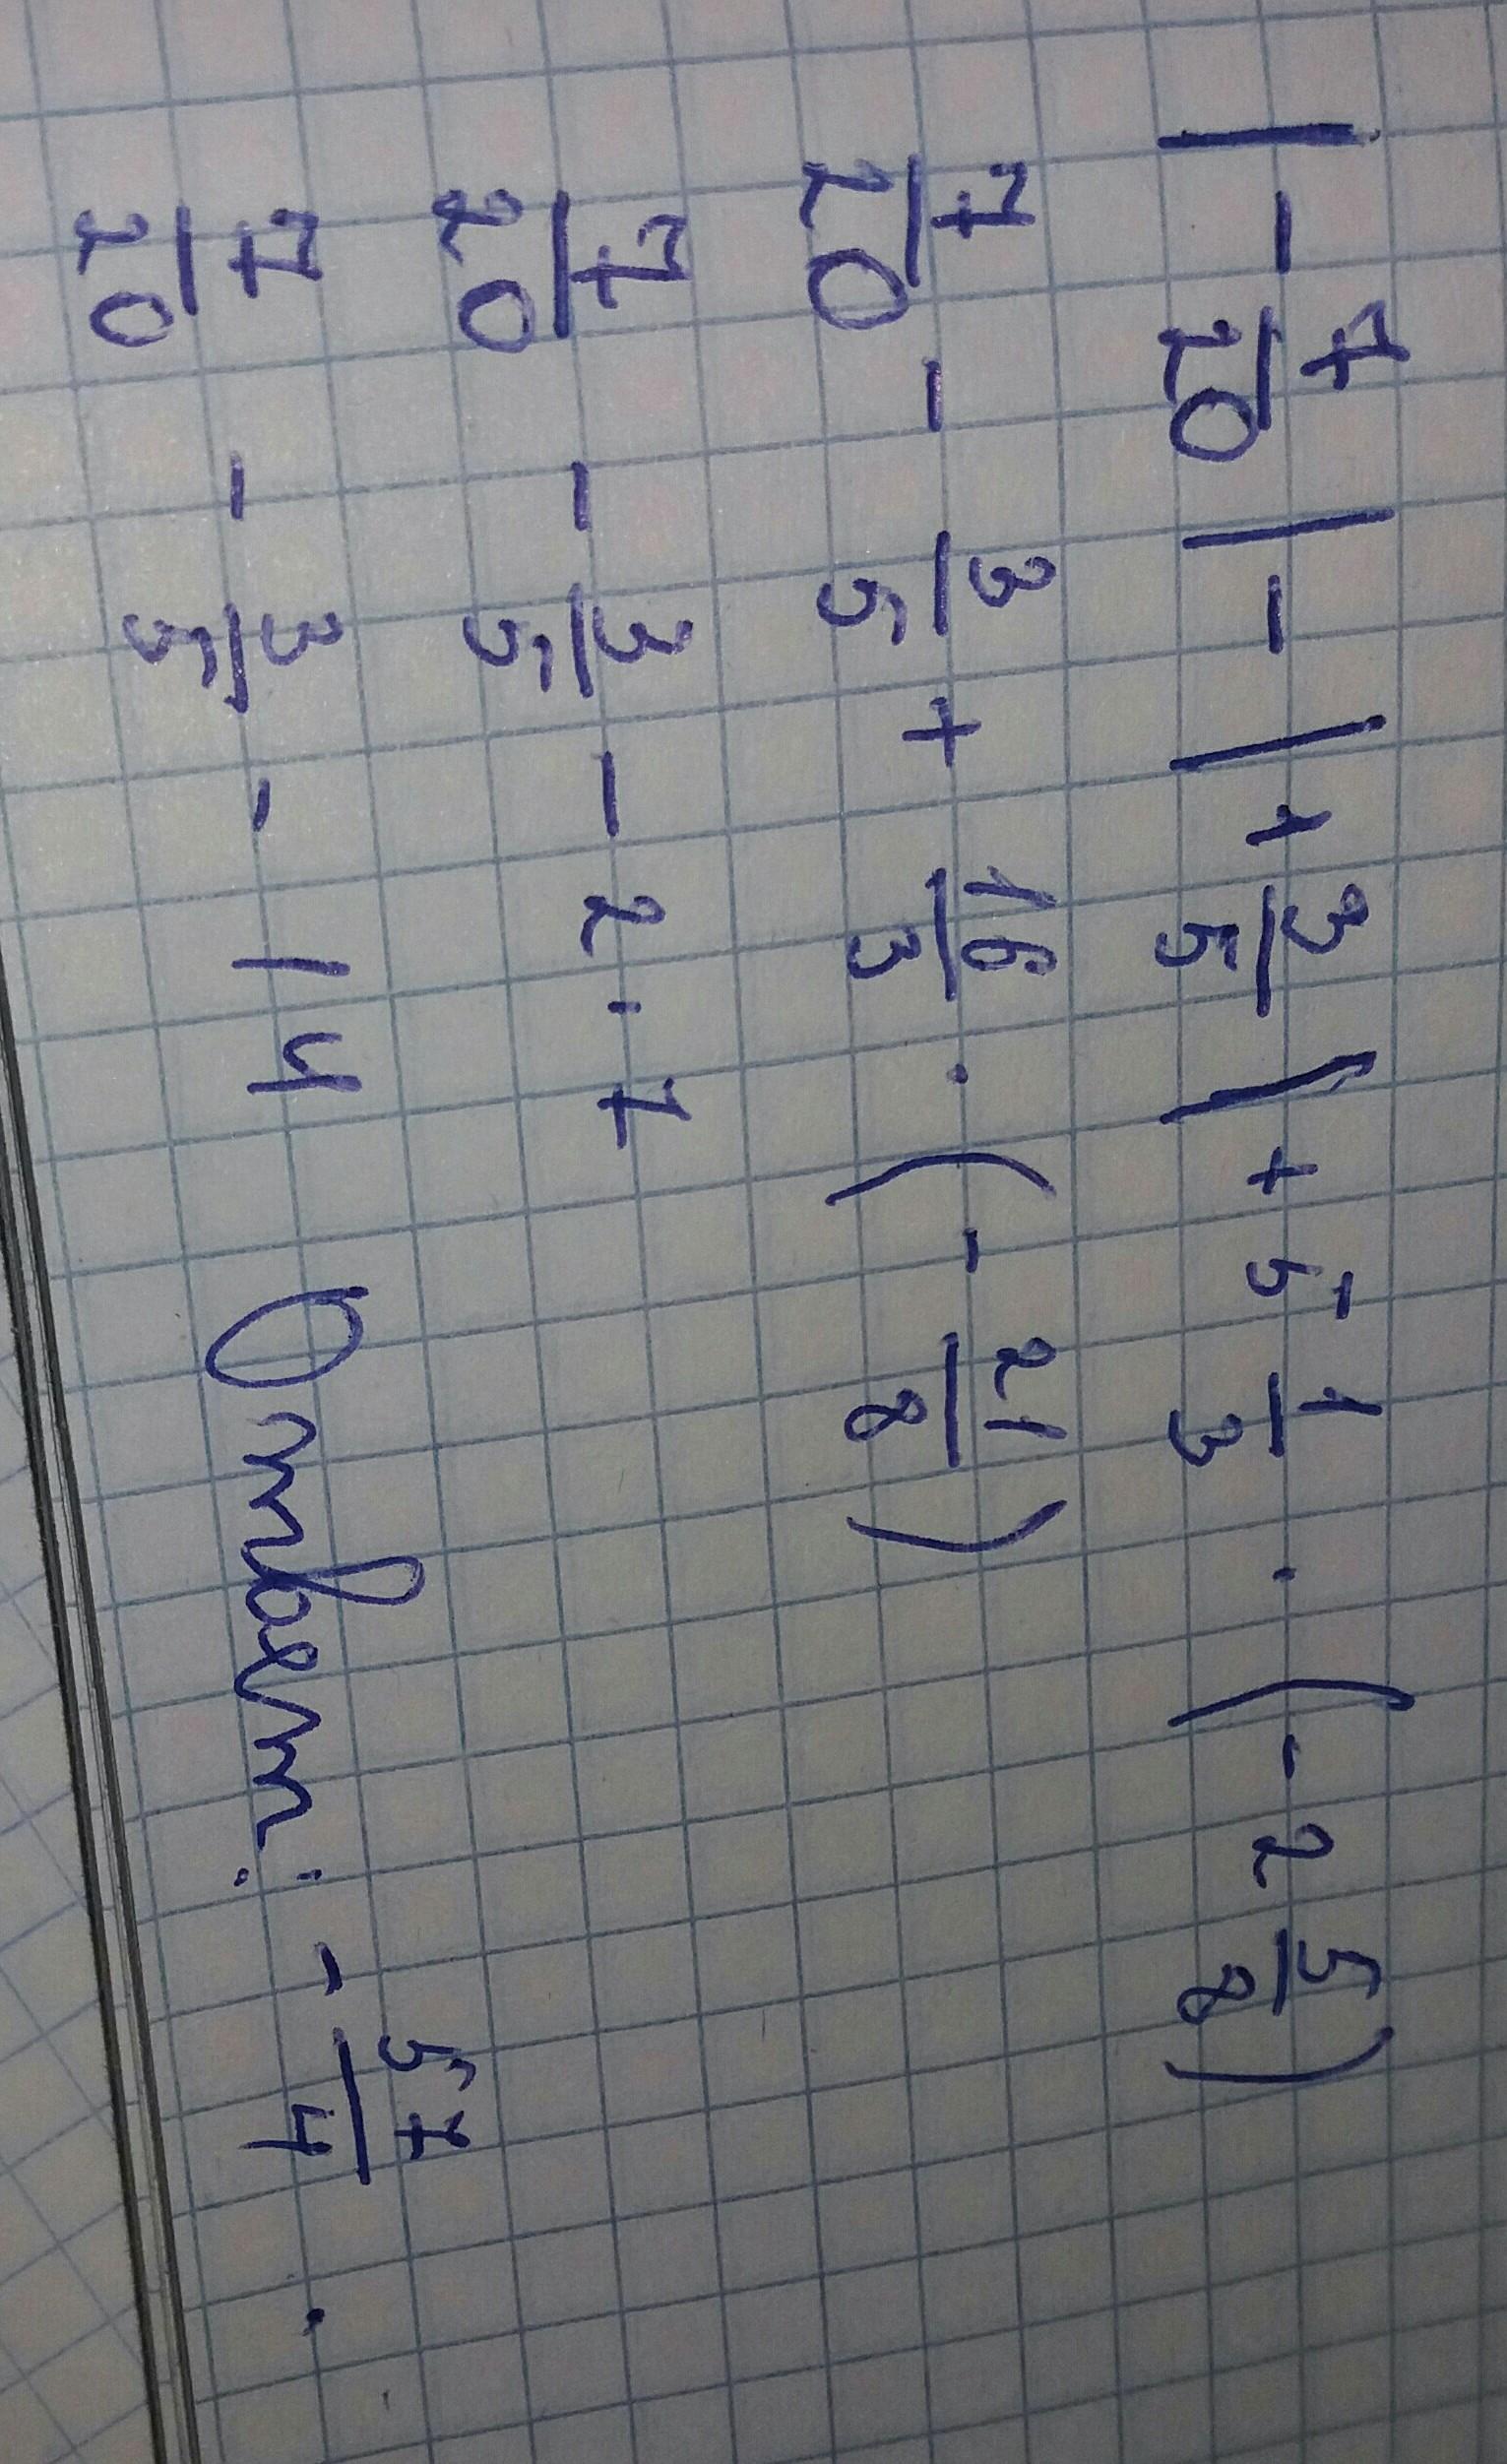 |- 7/20| - |+ 3/5| + 5 1/3 · (-2 5/8)
7/20 - 3/5 + 16/3 · (- 21/8)
7/20 - 3/5 - 2 · 7
7/20 - 3/5 - 14 Ответ: - 57/4 .